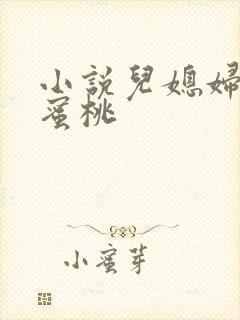 小說兒媳婦
蜜桃
小蜜芽